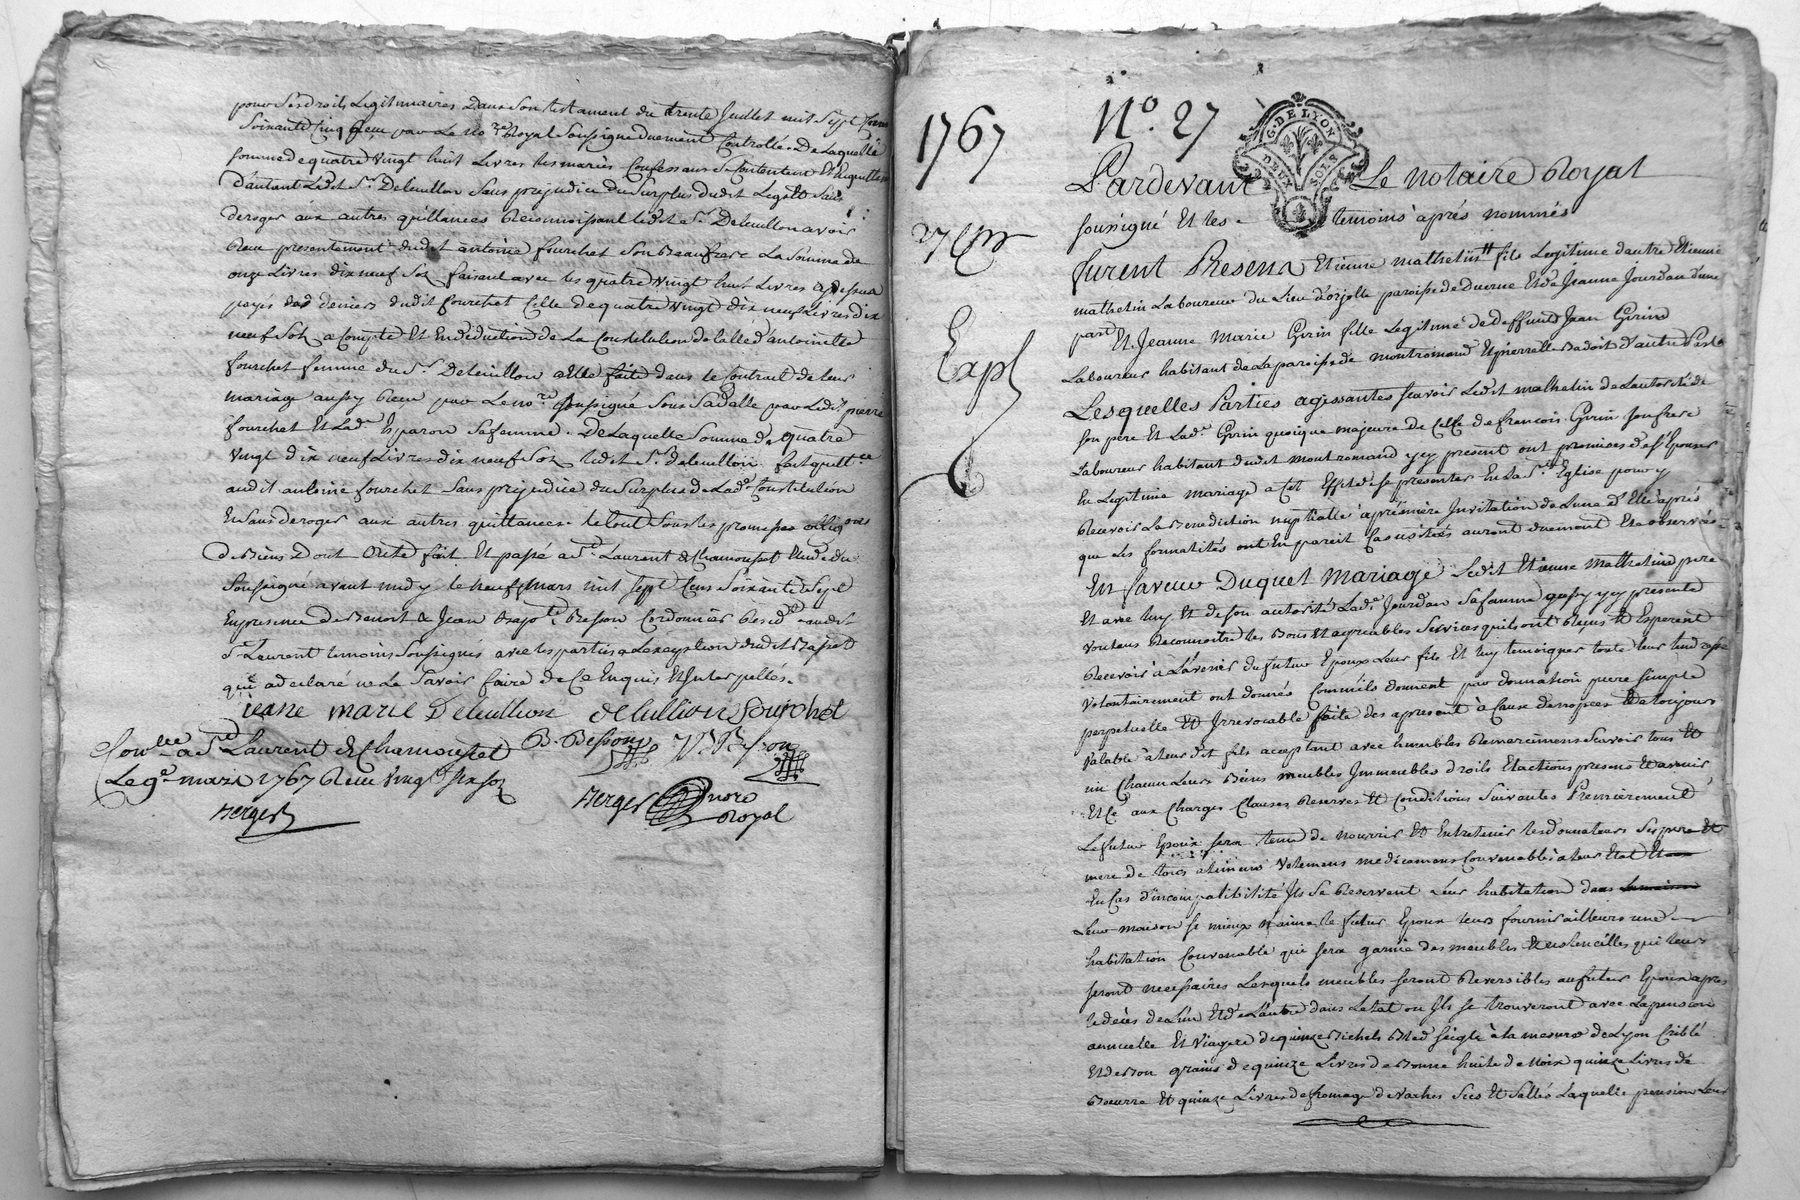 pour ses droits Legitimaires dans son testament du trente Juillet mil sept Cens
Soixante Cinq Receu par Le No.re Royal Soussigné duement Controllé. De Laquelle
somme de quatre vingt huit Livres les mariés Confessans se Contentent Et quittent
d'autant Ledit S.r Deleuillon Sans prejudice du Surplus dudit Legs Et Sans
deroger aux autres quittances Reconnoissant ledit S.r Deleuillon avoir
Receu presentement dudit antoine fourchet Son Beaufrere La Somme de
onze Livres dix neuf Sols faisant avec les quatre vingt huit Livres Cy dessus
payés des deniers dudit fourchet Celle de quatre vingt dix neuf Livres dix
neuf Sols a Compte Et En deduction de La Constitution de laditte antoinette
fourchet femme du S.r Deleuillon a Elle faite dans le Contract de leur
mariage aussy Receu par Le no.re Soussigné Sous Sa datte par Ledit pierre
fourchet Et Lad.e Sa femme. De Laquelle Somme de quatre
vingt dix neuf Livres dix neuf Sols ledit S.r deleuillon fait quitt.ce
audit antoine fourchet Sans prejudice du Surplus de Lad.e Constitution
En Sans deroger aux autres quittances. le tout Sous les promesses obligons
de Biens Dont acte fait Et passé a S.t Laurent de Chamousset Etude du
Soussigné avant midy le neuf mars mil sept Cens Soixante Sept
En presence de Benoit & Jean Bap.te Besson Cordonniers audit
S.t Laurent temoins Soussignés avec les parties a L'exception dudit
qui a declaré ne Le Savoir faire de Ce Enquis Et Interpellés.
jeane marie Deleullion deleullion fourchet
B. Besson J B Besson
Conllé a S.t Laurent de Chamousset
Le 9.e mars 1767 Receu vingt six sols
Berger
Berger no.re
Royal
1767
N.o 27
G. DE LYON
DEUX SOLS
27
Expé
Pardevant Le notaire Royal
soussigné Et les temoins après nommés
furent Presens Etienne mathelin fils Legitime d'autre Etienne
mathelin Laboureur du Lieu d'orjolle paroisse de Duerne Et de Jeanne Jourdan d'une
part Et Jeanne Marie Girin fille Legitime de deffunt Jean Girin
Laboureur habitant de La paroisse de montromand Et pierrette Badoit d'autre Part
Lesquelles Parties agissantes scavoir Ledit mathelin de L'autorité de
son pere Et Lad.e Girin quoique majeure de Celle de francois Girin son frere
Laboureur habitant dudit montromand y present ont promises de s'Epouser
En Legitime mariage a Cet Effet de se presenter En La S.te Eglise pour y
Recevoir La Benediction nuptialle a premiere Invitation de L'une d'Elle après
que les formalités ont En pareil Cas usitées auront duement Eté observées
En faveur Duquel Mariage Ledit Etienne Mathelin pere
Et avec luy Et de son autorité Lad.e Jourdan Sa femme aussy y presente
voulans Reconnoitre les Bons Et agreables Services qu'ils ont Reçus Et Esperent
Recevoir à L'avenir du futur Epoux Leur fils Et luy temoigner toute leur tendresse
volontairement ont donnés Comm'ils donnent par donnation pure simple
perpetuelle Et Irrevocable faite des apresent à Cause de nopces Et a toujours
valable à leur dit fils acceptant avec humbles Remercimens Scavoir tous Et
un Chacun Leurs Biens meubles Immeubles droits Et actions presens Et avenir
Et Ce aux Charges Clauses Reserves Et Conditions Suivantes Premièrement
Le futur Epoux sera tenu de nourrir Et Entretenir les donnateurs Ses pere Et
mere de tous alimens vetemens medicamens Convenables à leur Etat
En Cas d'incompatibilité Ils Se Reservent Leur habitation dans
Leur maison se mieux n'aime le futur Epoux leurs fournir ailleurs une
habitation Convenable qui sera garnie des meubles Et ustencilles qui leurs
seront necessaires Lesquels meubles seront Reversibles au futur Epoux apres
le décès de L'un Et de L'autre dans L'etat ou Ils se trouveront avec La pension
annuelle Et Viagere de quinze Bichets Bled seigle à la mesure de Lyon Criblé
Et de Bon grains de quinze Livres de Bonne huile de Noix quinze Livres de
Beurre Et quinze Livres de fromage de vaches Secs Et Sallés Laquelle pension Leur